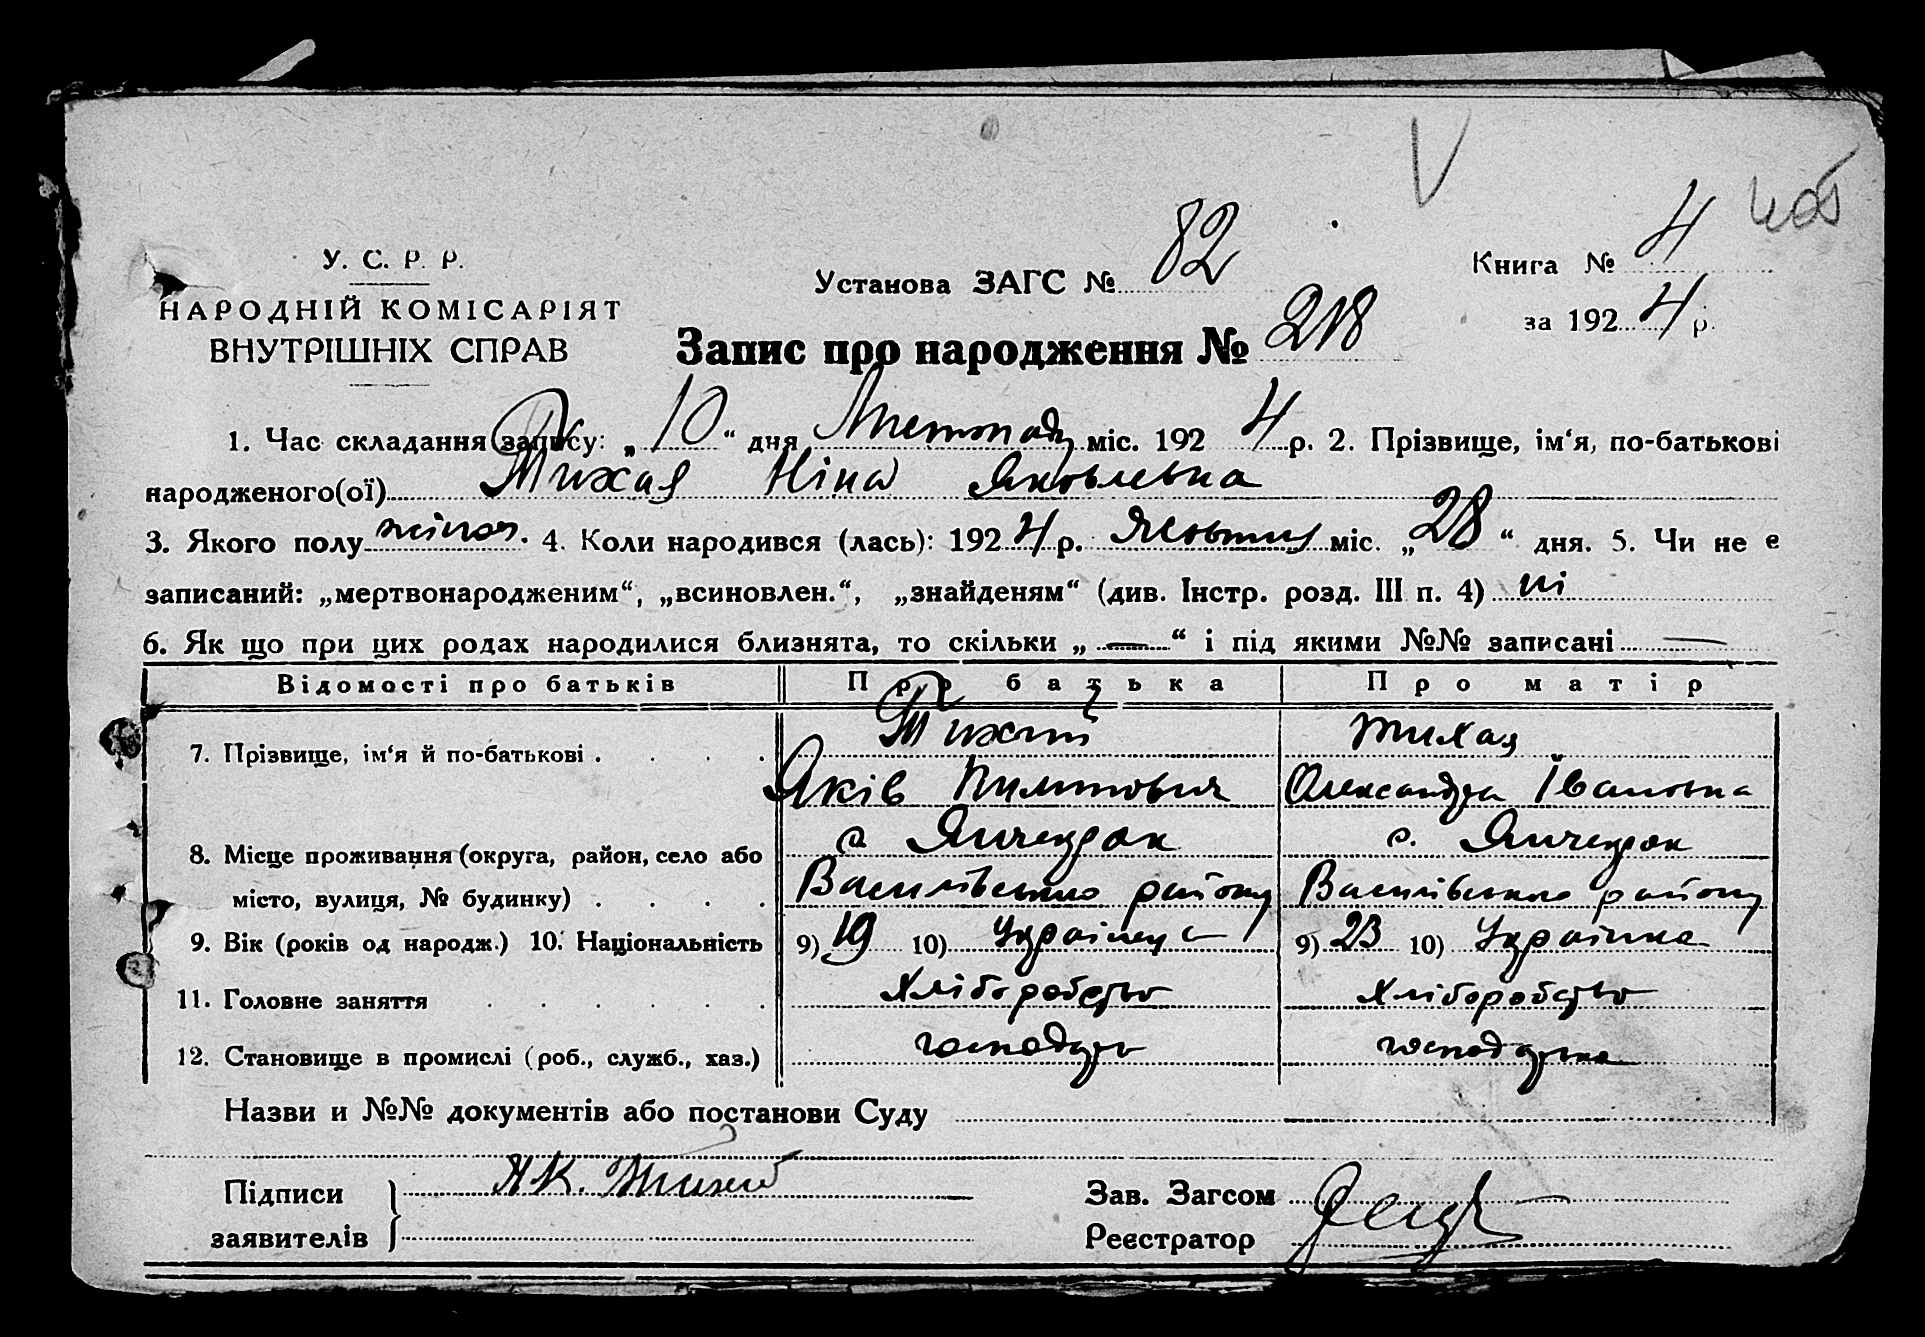 У. С. Р. Р.
НАРОДНІЙ КОМІСАРІЯТ
ВНУТРІШНІХ СПРАВ
Установа ЗАГС № 82
Книга № 4
за 1924 р.
Запис про народження № 218
1. Час складання запису: „10“ дня Листопаду міс. 1924 р. 2. Прізвище, ім‘я, по-батькові
народженого(ої) Тихая Ніна Яковлевна
3. Якого полу жіноч. 4. Коли народився (лась): 1924 р. Жовтня міс. „28“ дня. 5. Чи не є
записаний: „мертвонародженим“, „всиновлен.“, „знайденям“ (див. Інстр. розд. III п. 4) ні
6. Як що при цих родах народилися близнята, то скільки „ — “ і під якими №№ записані —
Відомості про батьків Про батька Про матір
7. Прізвище, ім‘я й по-батькові Тихий Тихая
Яків Пилипович Олександра Івановна
8. Місце проживання (округа, район, село або с. Янчекрак с. Янчекрак
місто, вулиця, № будинку) Василівського району Василівського району
9. Вік (років од народж.) 10. Національність 9) 19 10) Українец 9) 23 10) Українка
11. Головне заняття Хліборобство Хліборобство
12. Становище в промислі (роб., служб., хаз.) господарь господарка
Назви и №№ документів або постанови Суду
Підписи заявителів Як. Тихий
Зав. Загсом
Реєстратор